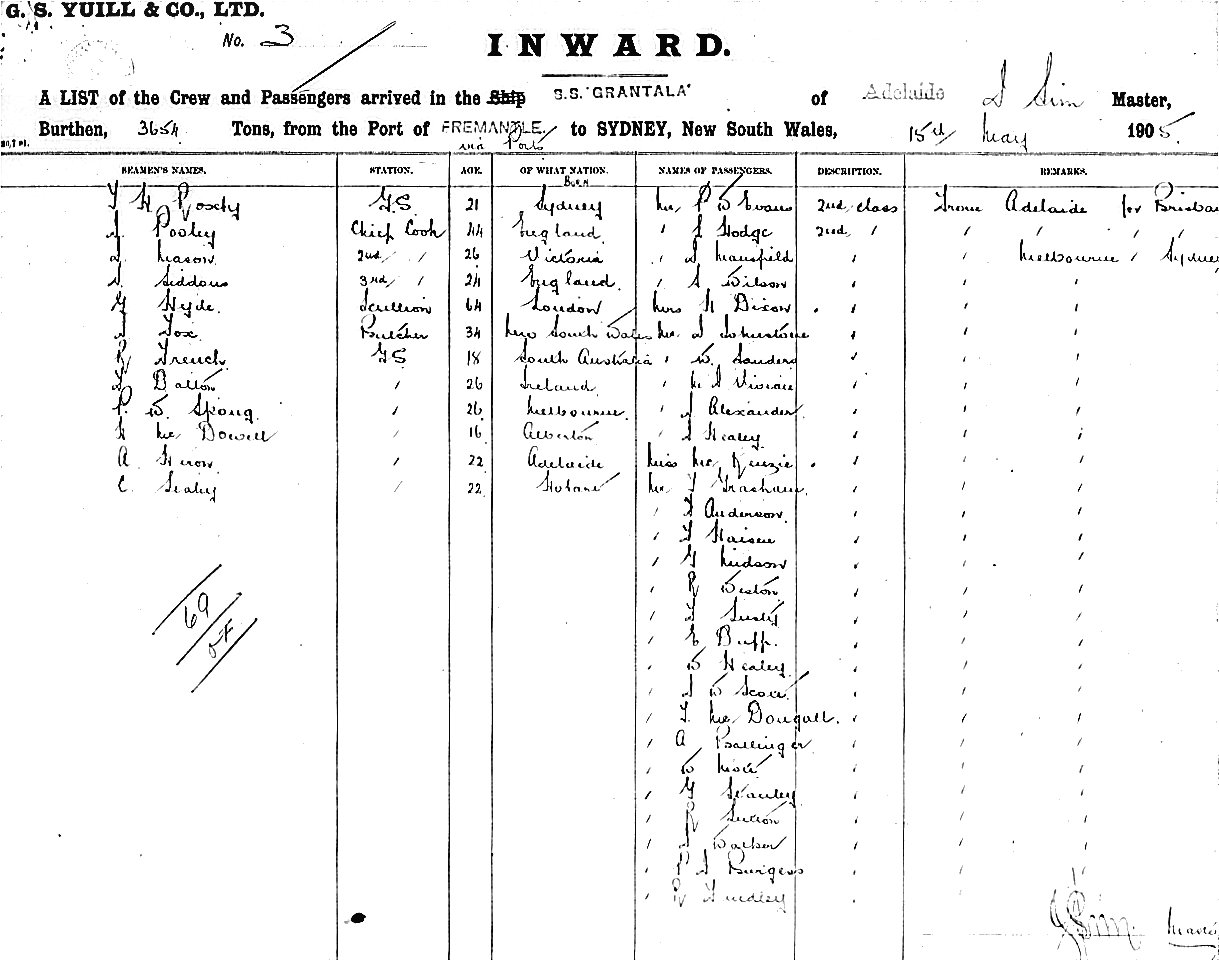 G. S. YUILL & CO., LTD.
No. 3
INWARD.
A LIST of the Crew and Passengers arrived in the Ship S.S. "GRANTALA" of Adelaide J Sim Master,
Burthen, 3654 Tons, from the Port of FREMANTLE to SYDNEY, New South Wales, 15th May 1905.
via Ports
SEAMEN'S NAMES. STATION. AGE. OF WHAT NATION. NAMES OF PASSENGERS. DESCRIPTION. REMARKS.
Born
H G.S. 21 Sydney Mr P W Evans 2nd class From Adelaide for Brisban
Pooley Chief Cook 44 England " J Hodge 2nd " " " "
J Mason 2nd " 26 Victoria " J Mansfield " Melbourne " Sydney
Siddons 3rd " 24 England " J Wilson " " "
G Hyde Scullion 64 London Mrs H Dixon " " "
J Fox Butcher 34 New South Wales Mr J Johnstone " " "
R French G.S 18 South Australia " W. Sanders " " "
Dalton " 26 Ireland " Vivian " " "
P. W. Spong " 26 Melbourne " J Alexander " " "
H Mc Dowell " 16 Alberton " J Healey " " "
A Heron " 22 Adelaide Miss Mc Kenzie " " "
C. Sealey " 22 Hobart Mr Grasham " " "
" Anderson " " "
" " " "
" G Hudson " " "
" R Weston " " "
" " " "
" E Buff " " "
" W Healey " " "
" J W Scott " " "
" Mc Dougall " " "
" A Ballinger " " "
" W " " "
" G Stanley " " "
" R Sutton " " "
" J Walker " " "
" P J Burgess " " "
" R " " "
69
J Sim Master